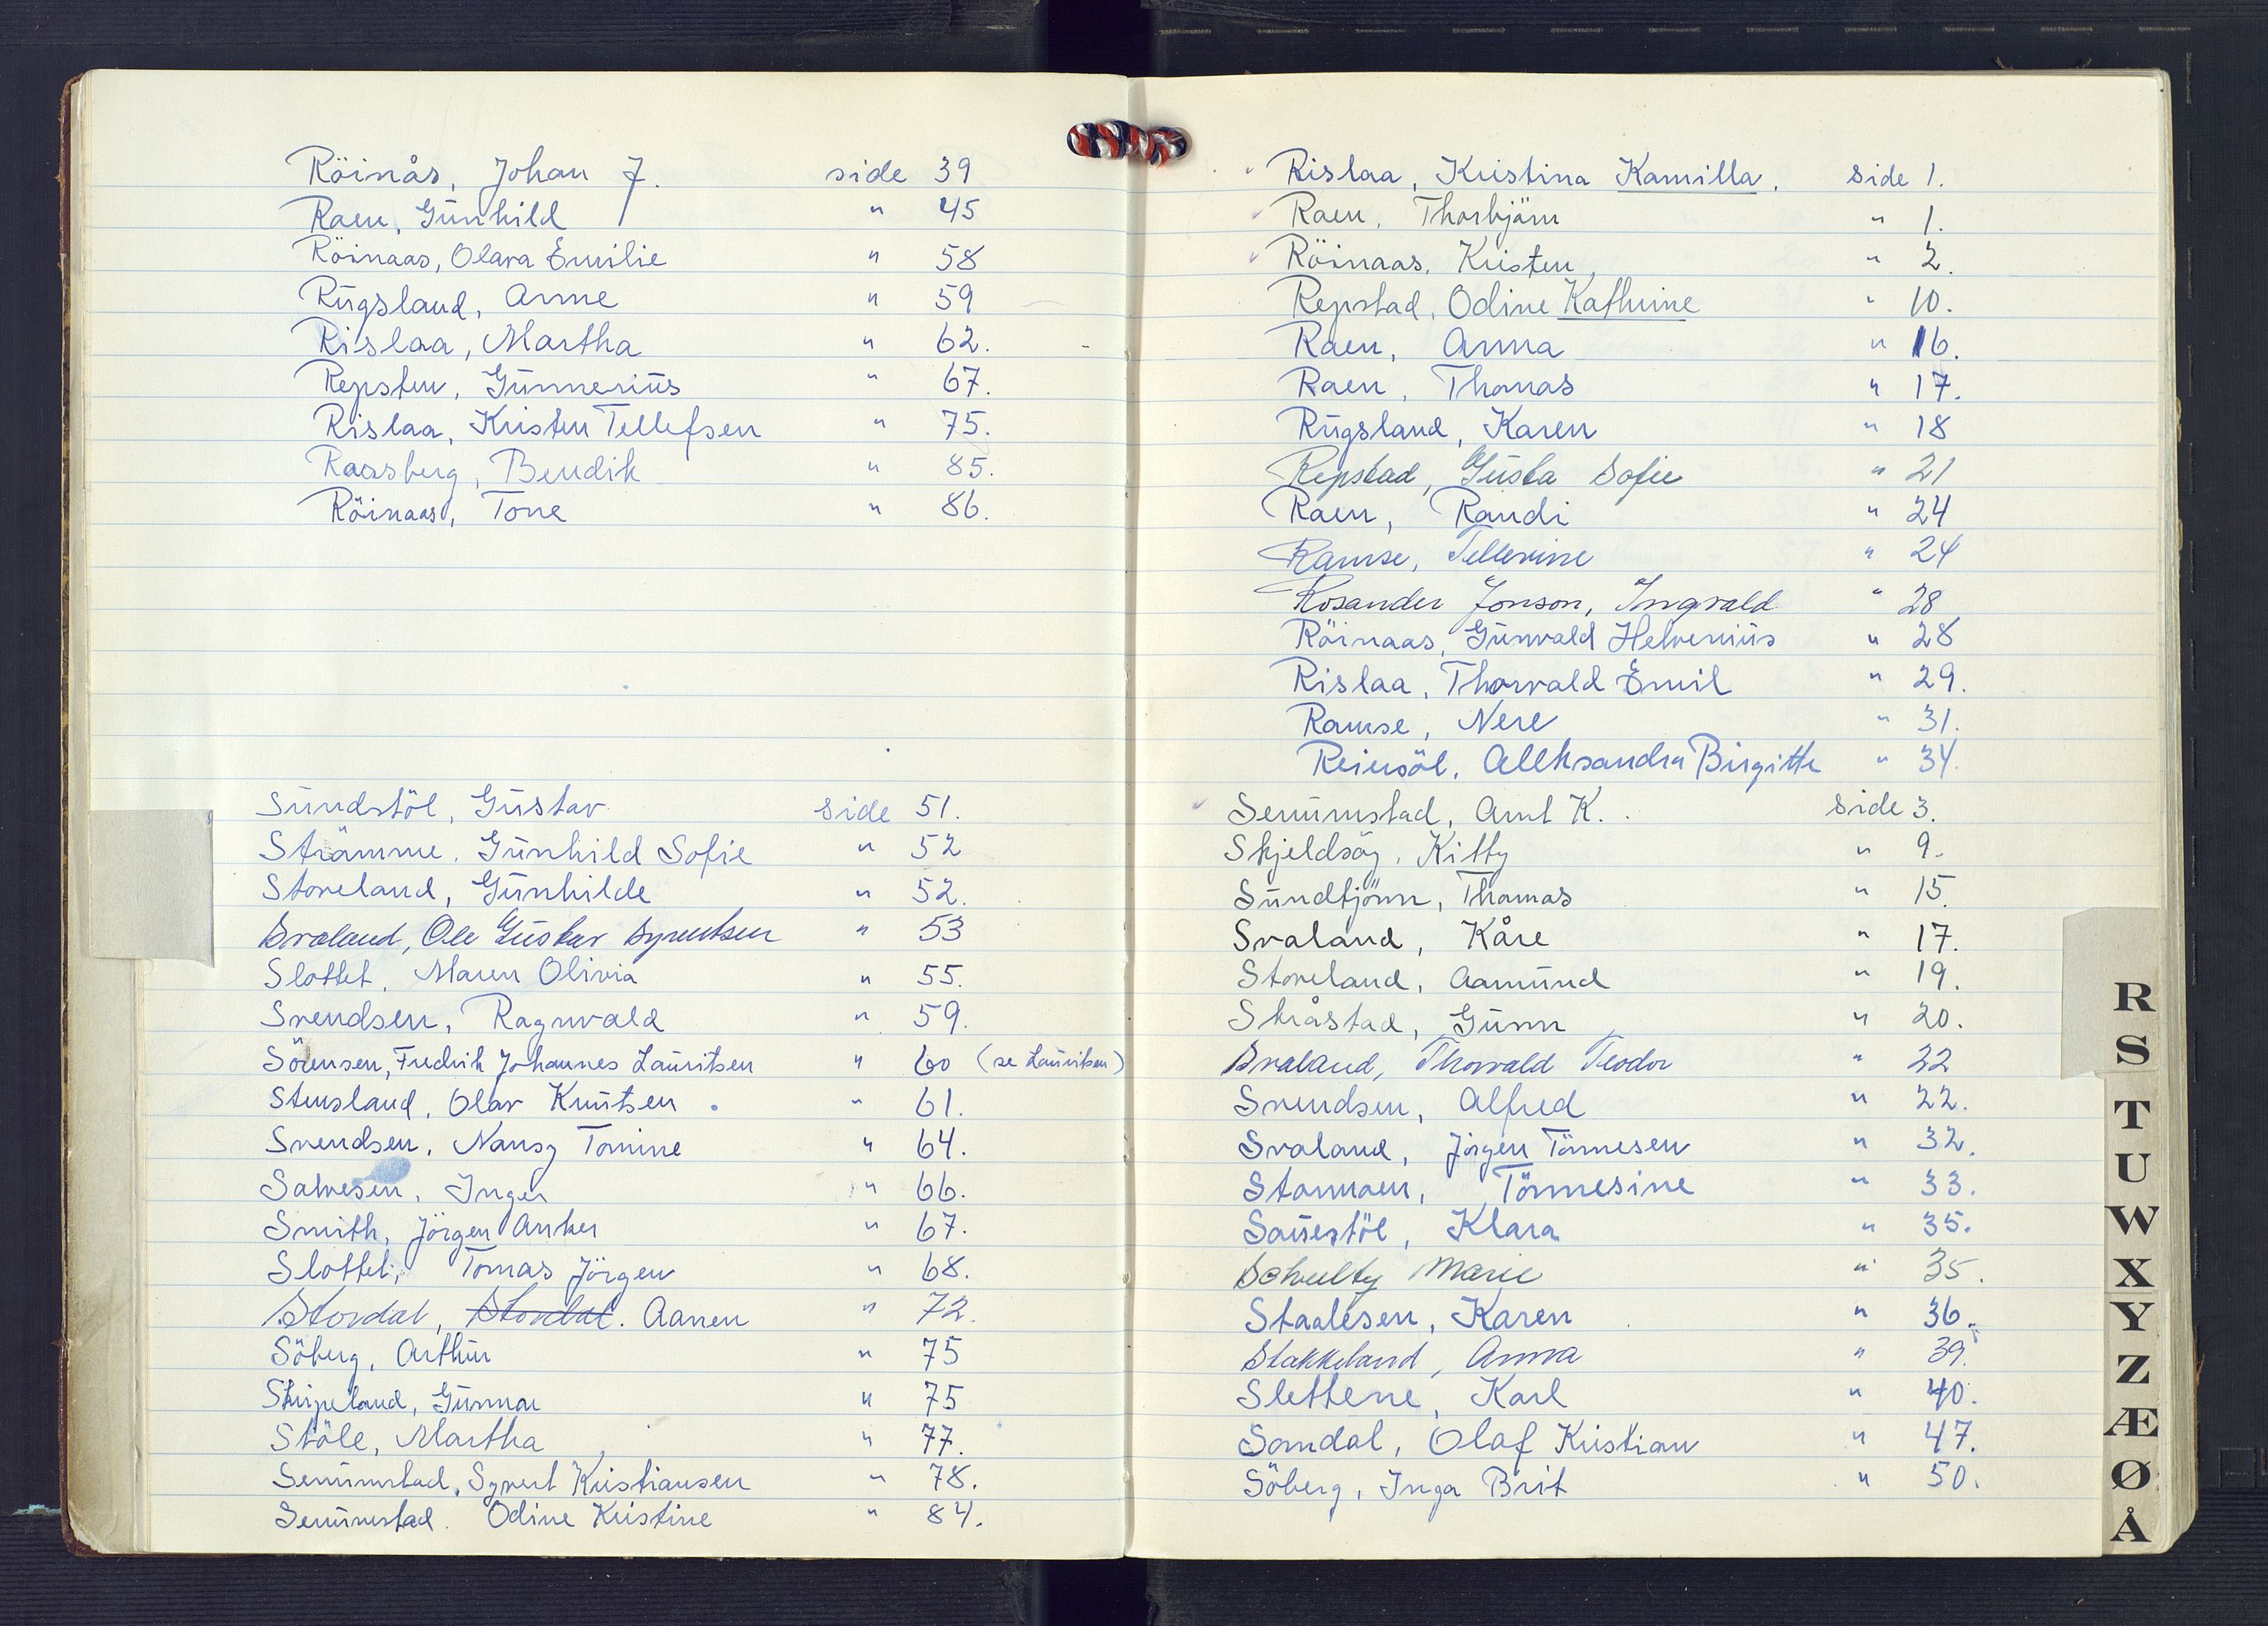 Röinås, Johan J. side 39
Raen, Gunhild " 45
Röinaas, Olava Emilie " 58
Rugsland, Anne " 59
Rislaa, Martha " 62.
Repsten, Gunnerius " 67.
Rislaa, Kristen Tellefsen " 75.
Raasberg, Bendik " 85.
Röinaas, Tone " 86.
Sundstöl, Gustav side 51.
Strämme, Gunhild Sofie " 52
Storeland, Gunhilde " 52.
Svaland, Ole Gustav Syvertsen " 53
Slottet, Maren Olivia " 55.
Svendsen, Ragnvald " 59.
Sörensen, Fredrik Johannes Lauritsen " 60 (se Lauritsen)
Stensland, Olav Knutsen " 61.
Svendsen, Nansy Tomine " 64.
Salvesen, Inger " 66.
Smith, Jörgen Anker " 67.
Slottet, Tomas Jörgen " 68.
Stordal, Stordal. Aanen " 72.
Söberg, Arthur " 75
Skripeland, Gunnar " 75
Stöle, Martha " 77.
Senumstad, Syvert Kristiansen " 78.
Senumstad. Odine Kristine " 84.
Rislaa, Kristina Kamilla. side 1.
Raen, Thorbjörn " 1.
Röinaas, Kristen " 2.
Repstad, Odine Kathrine " 10.
Raen, Anna " 16.
Raen, Thomas " 17.
Rugsland, Karen " 18
Repstad, Gusta Sofie " 21
Raen, Randi " 24
Ramse, Tellevine " 24
Rosander Jonson, Ingvald " 28
Röinaas, Gunvald Helvenius " 28
Rislaa, Thorvald Emil " 29.
Ramse, Nere " 31.
Reiersöl, Alleksandra Birgitte " 34.
Senumstad, Arnt K. side 3.
Skjeldsöy, Kitty " 9.
Sundtjönn, Thomas " 15.
Svaland, Kåre " 17.
Storeland, Aamund " 19.
Skråstad, Gunn " 20.
Svaland, Thorvald Teodor " 22
Svendsen, Alfred " 22.
Svaland, Jörgen Tönnesen " 32.
Stormoen, Tönnesine " 33.
Sauestöl, Klara " 35.
Schultz Marie " 35.
Staalesen, Karen " 36.
Stakkeland, Anna " 39.
Slettene, Karl " 40.
Somdal, Olaf Kristian " 47.
Söberg, Inga Brit " 50.
R
S
T
U
W
X
Y
Z
Æ
Ø
Å